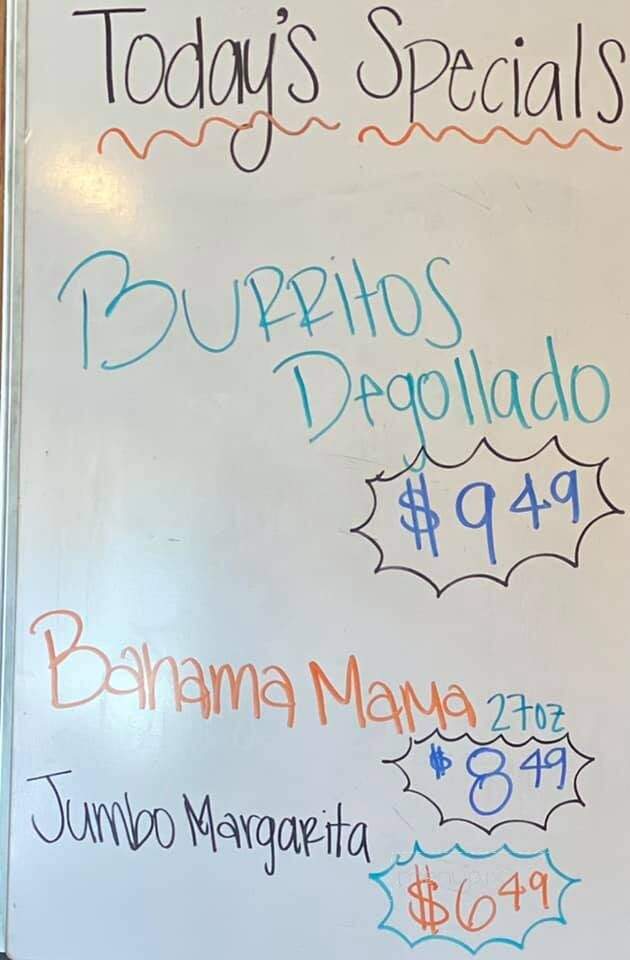 Today's Specials
Burritos
Degollado
$9.49
Bahama Mama 27oz
$8.49
Jumbo Margarita
$6.49